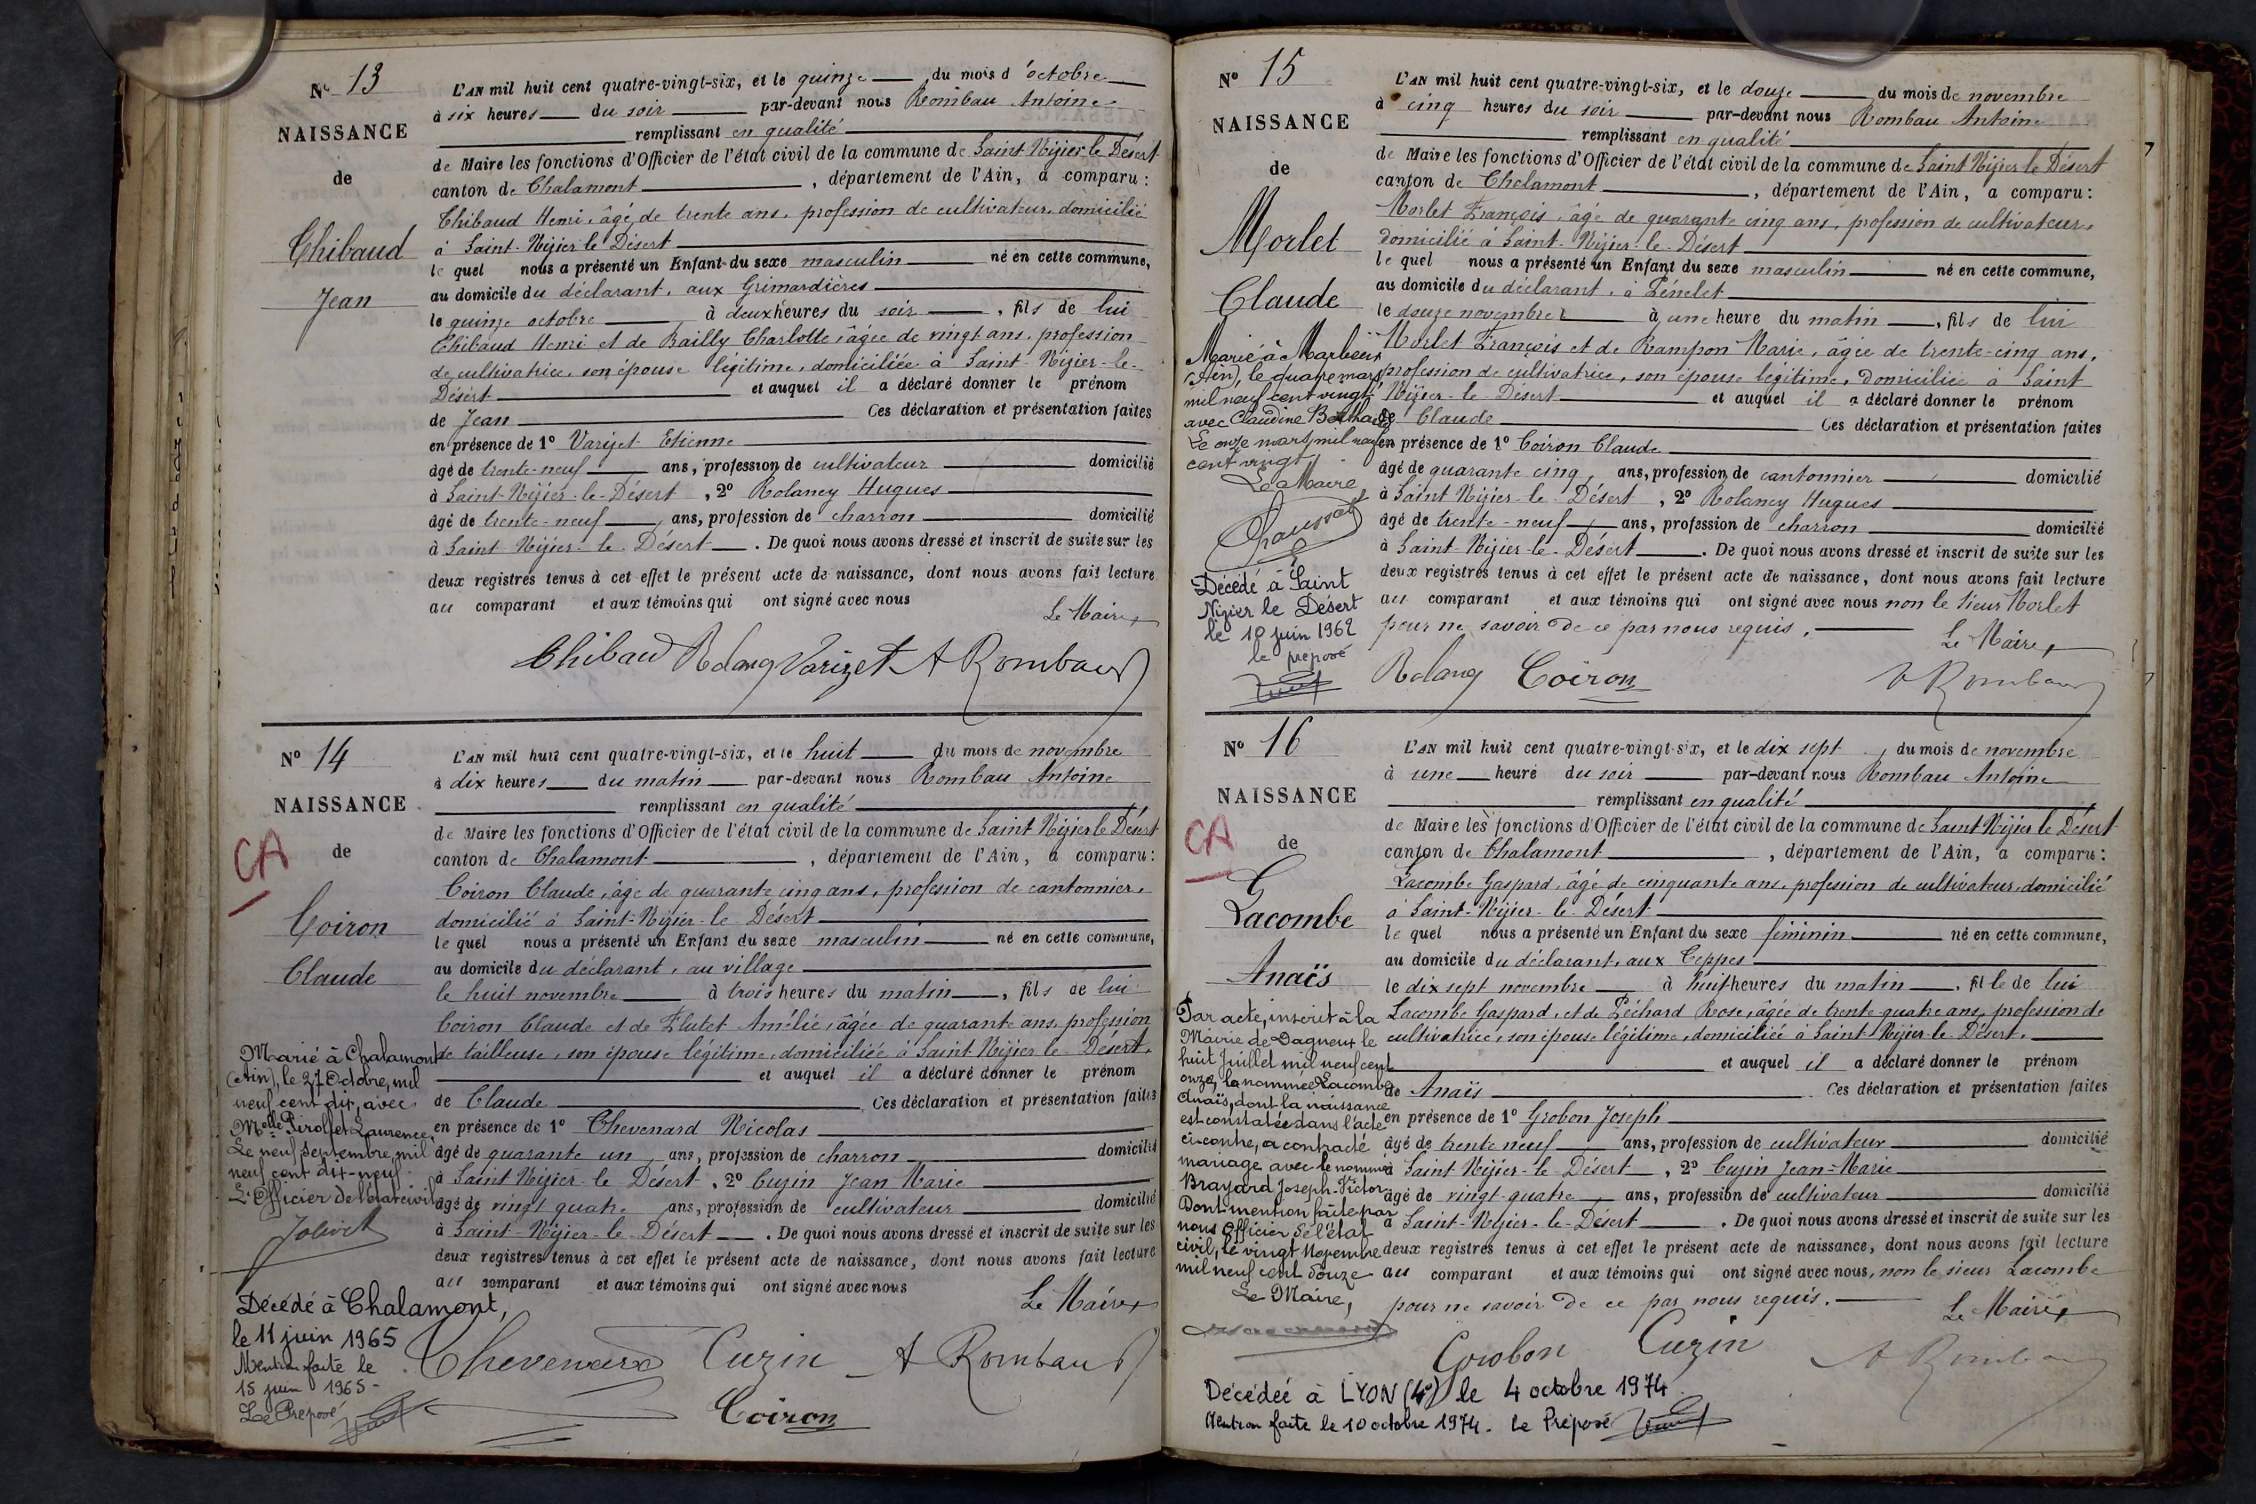 N° 13
NAISSANCE
de
Thibaud
Jean
L'AN mil huit cent quatre-vingt-six, et le quinze du mois d'octobre
à six heures du soir par-devant nous Rombau Antoine
remplissant en qualité
de Maire les fonctions d'Officier de l'état civil de la commune de Saint Nizier le Désert
canton de Chalamont, département de l'Ain, a comparu :
Thibaud Henri, âgé de trente ans, profession de cultivateur, domicilié
à Saint-Nizier-le Désert
le quel nous a présenté un Enfant du sexe masculin né en cette commune,
au domicile du déclarant, aux Grimardières
le quinze octobre à deux heures du soir, fils de lui
Thibaud Henri et de Bailly Charlotte, âgée de vingt ans, profession
de cultivatrice, son épouse légitime, domiciliée à Saint-Nizier-le-
Désert et auquel il a déclaré donner le prénom
de Jean Ces déclaration et présentation faites
en présence de 1° Varizet Etienne
âgé de trente-neuf ans, profession de cultivateur domicilié
à Saint-Nizier-le-Désert, 2° Rolancy Hugues
âgé de trente-neuf ans, profession de charron domicilié
à Saint Nizier-le-Désert. De quoi nous avons dressé et inscrit de suite sur les
deux registres tenus à cet effet le présent acte de naissance, dont nous avons fait lecture
au comparant et aux témoins qui ont signé avec nous
Le Maire
Thibaud Varizet A Rombau
N° 14
NAISSANCE
de
CA
Coiron
Claude
L'AN mil huit cent quatre-vingt-six, et le huit du mois de novembre
à dix heures du matin par-devant nous Rombau Antoine
remplissant en qualité
de Maire les fonctions d'Officier de l'état civil de la commune de Saint Nizier le Désert
canton de Chalamont, département de l'Ain, a comparu :
Coiron Claude, âgé de quarante cinq ans, profession de cantonnier,
domicilié à Saint-Nizier-le Désert
le quel nous a présenté un Enfant du sexe masculin né en cette commune,
au domicile du déclarant, au village
le huit novembre à trois heures du matin, fils de lui
Coiron Claude et de Flutet Amélie, âgée de quarante ans, profession
de tailleuse, son épouse légitime, domiciliée à Saint Nizier le Désert,
et auquel il a déclaré donner le prénom
de Claude Ces déclaration et présentation faites
en présence de 1° Chevenard Nicolas
âgé de quarante un ans, profession de charron domicilié
à Saint Nizier-le Désert, 2° Cuzin Jean Marie
âgé de vingt quatre ans, profession de cultivateur domicilié
à Saint-Nizier-le Désert. De quoi nous avons dressé et inscrit de suite sur les
deux registres tenus à cet effet le présent acte de naissance, dont nous avons fait lecture
au comparant et aux témoins qui ont signé avec nous
Le Maire
Chevenard Cuzin A Rombau
Coiron
Marié à Chalamont
(Ain), le 27 Octobre, mil
neuf cent dix, avec
Melle Pirollet Laurence.
Le neuf Septembre, mil
neuf cent dix-neuf.
L'Officier de l'état civil
Jolivet
Décédé à Chalamont,
le 11 juin 1965
Mention faite le
15 juin 1965-
Le Préposé
N° 15
NAISSANCE
de
Morlet
Claude
L'AN mil huit cent quatre-vingt-six, et le douze du mois de novembre
à cinq heures du soir par-devant nous Rombau Antoine
remplissant en qualité
de Maire les fonctions d'Officier de l'état civil de la commune de Saint Nizier le Désert
canton de Chalamont, département de l'Ain, a comparu :
Morlet François, âgé de quarante cinq ans, profession de cultivateur,
domicilié à Saint-Nizier-le-Désert
le quel nous a présenté un Enfant du sexe masculin né en cette commune,
au domicile du déclarant, à
le douze novembre à une heure du matin, fils de lui
Morlet François et de Rampon Marie, âgée de trente-cinq ans,
profession de cultivatrice, son épouse légitime, domiciliée à Saint
Nizier-le-Désert et auquel il a déclaré donner le prénom
de Claude Ces déclaration et présentation faites
en présence de 1° Coiron Claude
âgé de quarante cinq ans, profession de cantonnier domicilié
à Saint Nizier-le-Désert, 2° Rolancy Hugues
âgé de trente-neuf ans, profession de charron domicilié
à Saint-Nizier-le-Désert. De quoi nous avons dressé et inscrit de suite sur les
deux registres tenus à cet effet le présent acte de naissance, dont nous avons fait lecture
au comparant et aux témoins qui ont signé avec nous non le sieur Morlet
pour ne savoir de ce par nous requis.
Le Maire
Coiron A Rombau
Marié à Marlieux
(Ain), le quatre mars
mil neuf cent vingt
avec Claudine
Le onze mars mil neuf
cent vingt
Le Maire,
Décédé à Saint
Nizier le Désert
le 10 juin 1962
le préposé
N° 16
NAISSANCE
de
CA
Lacombe
Anaïs
L'AN mil huit cent quatre-vingt-six, et le dix sept du mois de novembre
à une heure du soir par-devant nous Rombau Antoine
remplissant en qualité
de Maire les fonctions d'Officier de l'état civil de la commune de Saint Nizier le Désert
canton de Chalamont, département de l'Ain, a comparu :
Lacombe Gaspard, âgé de cinquante ans, profession de cultivateur, domicilié
à Saint-Nizier-le-Désert
le quel nous a présenté un Enfant du sexe féminin né en cette commune,
au domicile du déclarant, aux Teppes
le dix sept novembre à neuf heures du matin, fille de lui
Lacombe Gaspard, et de Péchard Rose, âgée de trente quatre ans, profession de
cultivatrice, son épouse légitime, domiciliée à Saint-Nizier-le-Désert.
et auquel il a déclaré donner le prénom
de Anaïs Ces déclaration et présentation faites
en présence de 1° Grobon Joseph
âgé de trente neuf ans, profession de cultivateur domicilié
à Saint Nizier-le Désert, 2° Cuzin Jean-Marie
âgé de vingt-quatre ans, profession de cultivateur domicilié
à Saint-Nizier-le-Désert. De quoi nous avons dressé et inscrit de suite sur les
deux registres tenus à cet effet le présent acte de naissance, dont nous avons fait lecture
au comparant et aux témoins qui ont signé avec nous, non le sieur Lacombe
pour ne savoir de ce par nous requis.
Le Maire
Grobon Cuzin A Rombau
Par acte, inscrit à la
Mairie de Dagneux le
huit Juillet mil neuf cent
onze, la nommée Lacombe
Anaïs, dont la naissance
est constatée dans l'acte
ci-contre, a contracté
mariage avec le nommé
Brayard Joseph-Victor
Dont mention faite par
nous Officier de l'état
civil, le vingt Novembre
mil neuf cent douze
Le Maire,
Décédée à LYON (4e) le 4 octobre 1974.
Mention faite le 10 octobre 1974. Le Préposé